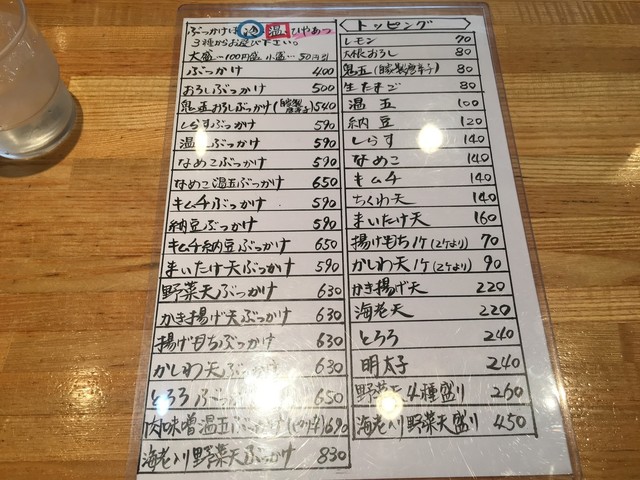 ぶっかけは 冷 温 ひやあつ
3種からお選び下さい。
大盛…100円増 小盛…50円引
ぶっかけ 400
おろしぶっかけ 500
鬼玉おろしぶっかけ(自家製唐辛子) 540
しらすぶっかけ 590
温玉ぶっかけ 590
なめこぶっかけ 590
なめこ温玉ぶっかけ 650
キムチぶっかけ 590
納豆ぶっかけ 590
キムチ納豆ぶっかけ 650
まいたけ天ぶっかけ 590
野菜天ぶっかけ 630
かき揚げ天ぶっかけ 630
揚げもちぶっかけ 630
かしわ天ぶっかけ 630
とろろぶっかけ 650
肉味噌温玉ぶっかけ 690
海老入り野菜天ぶっかけ 830
トッピング
レモン 70
大根おろし 80
鬼玉(自家製唐辛子) 80
生たまご 80
温玉 100
納豆 120
しらす 140
なめこ 140
キムチ 140
ちくわ天 140
まいたけ天 160
揚げもち1ケ(2ケより) 70
かしわ天1ケ(2ケより) 90
かき揚げ天 220
海老天 220
とろろ 240
明太子 240
野菜天4種盛り 260
海老入り野菜天盛り 450